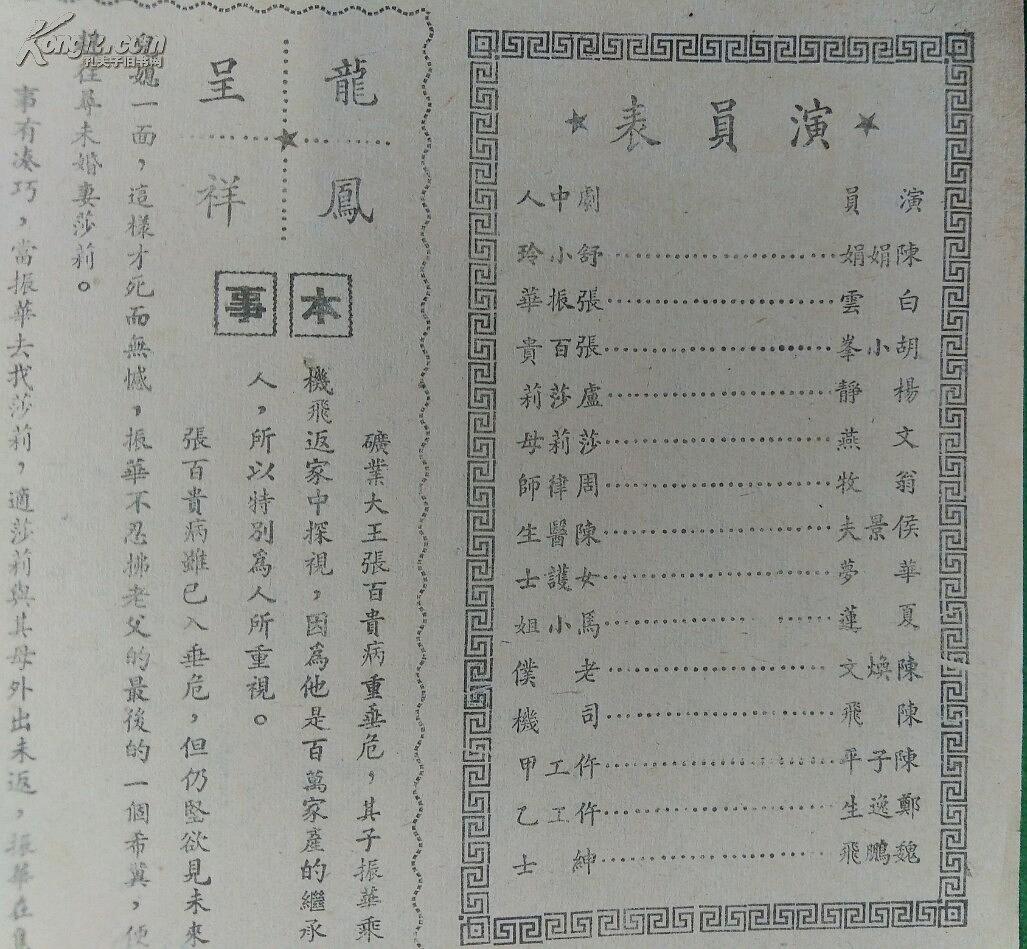 ★演員表★
演員 劇中人
陳娟娟……舒小玲
白雲……張振華
胡小峯……張百貴
楊靜……盧莎莉
文燕……莎莉母
翁牧……周律師
侯景夫……陳醫生
華夢……女護士
夏蓮……馬小姐
陳煥文……老僕
陳飛……司機
陳子平……仵工甲
鄭逸生……仵工乙
魏鵬飛……紳士
龍鳳
呈祥
本事
礦業大王張百貴病重垂危，其子振華乘
機飛返家中探視，因為他是百萬家產的繼承
人，所以特別為人所重視。
張百貴病雖已入垂危，但仍堅欲見未來
媳一面，這樣才死而無憾，振華不忍拂老父的最後的一個希冀，便
往尋未婚妻莎莉。
事有湊巧，當振華去找莎莉，適莎莉與其母外出未返，振華在
孔夫子旧书网